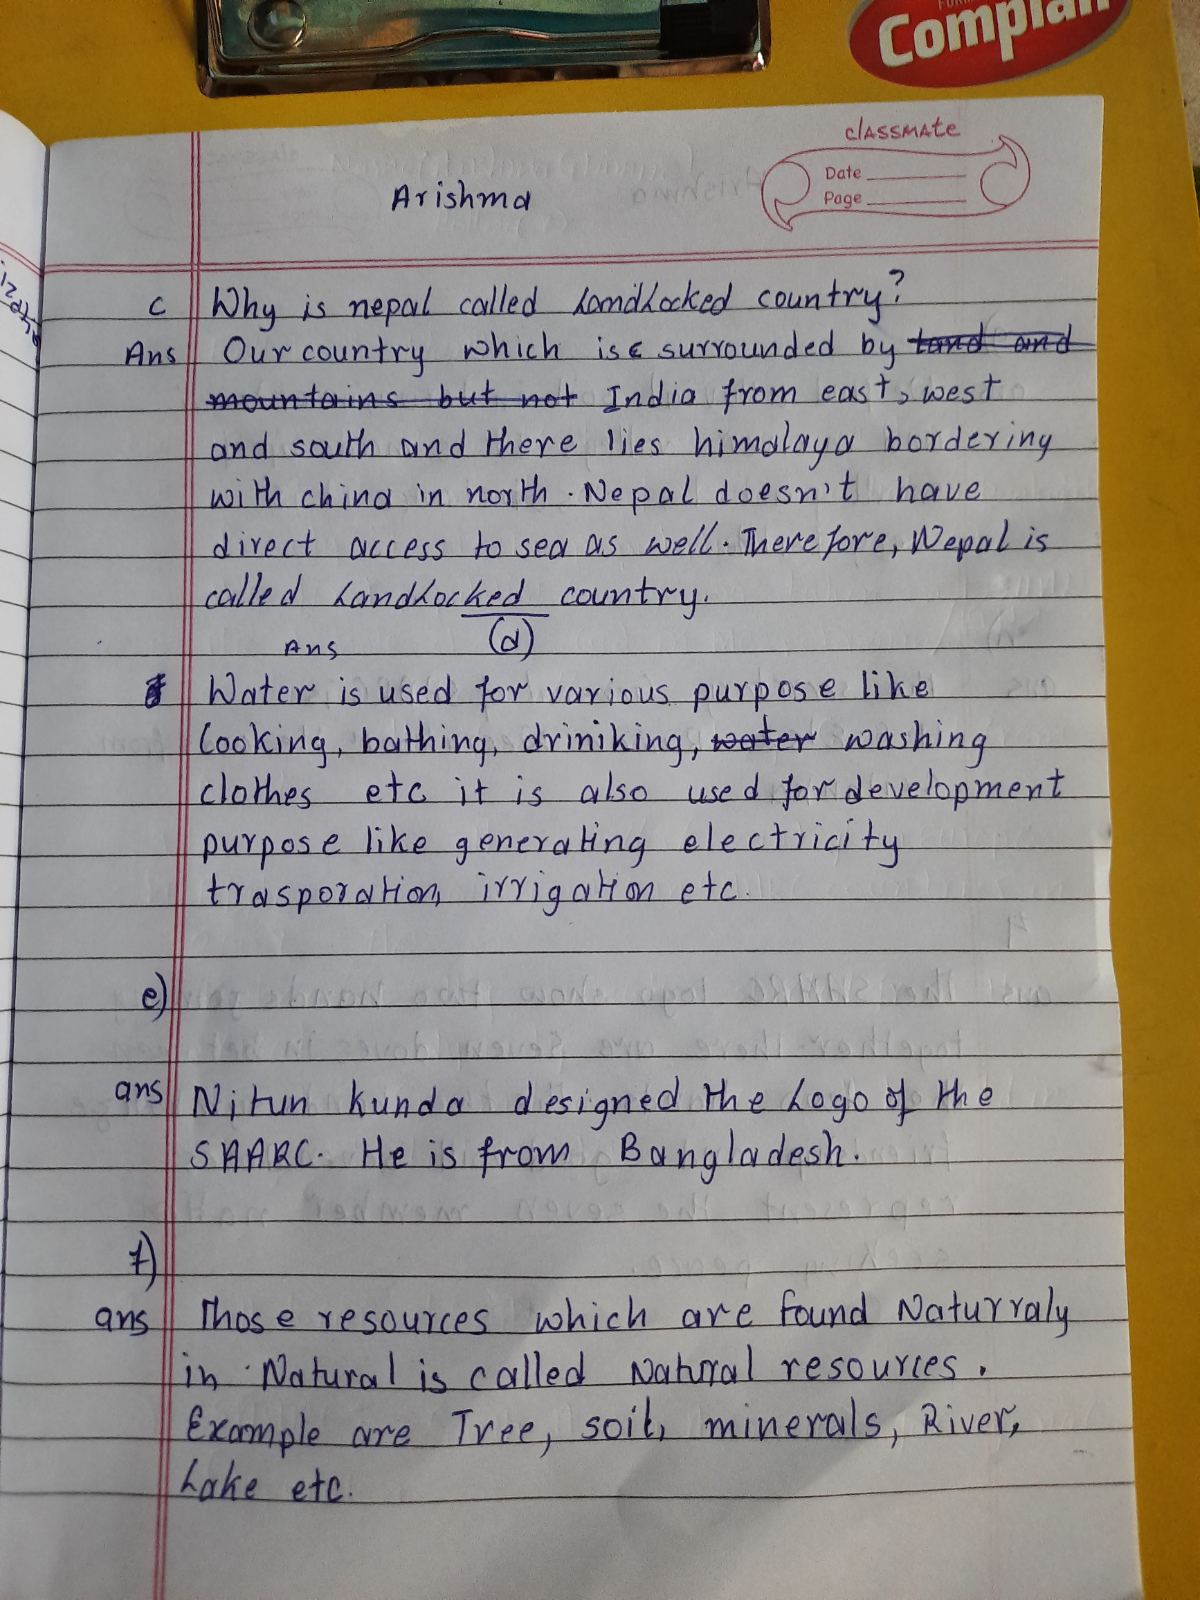 Complan
classmate
Date
Page
Arishma
c Why is nepal called LandLocked country?
Ans Our country which is surrounded by land and
mountains but not India from east, west
and south and there lies himalaya bordering
with china in north. Nepal doesn't have
direct access to sea as well. Therefore, Nepal is
called LandLocked country.
Ans (d)
Water is used for various purpose like
Cooking, bathing, driniking, water washing
clothes etc it is also used for development
purpose like generating electricity
trasporation, irrigation etc.
e)
ans Nitun kunda designed the Logo of the
SAARC. He is from Bangladesh.
f)
ans Those resources which are found Naturraly
in Natural is called Natural resources.
Example are Tree, soil, minerals, River,
Lake etc.